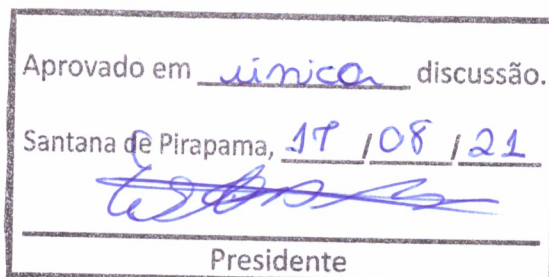 Aprovado em única discussão.
Santana de Pirapama, 17 / 08 / 21
Presidente